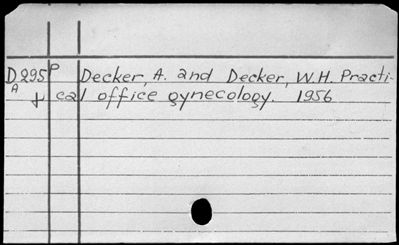 D295 P Decker, A. and Decker, W.H. Practi-
A cal office gynecology. 1956